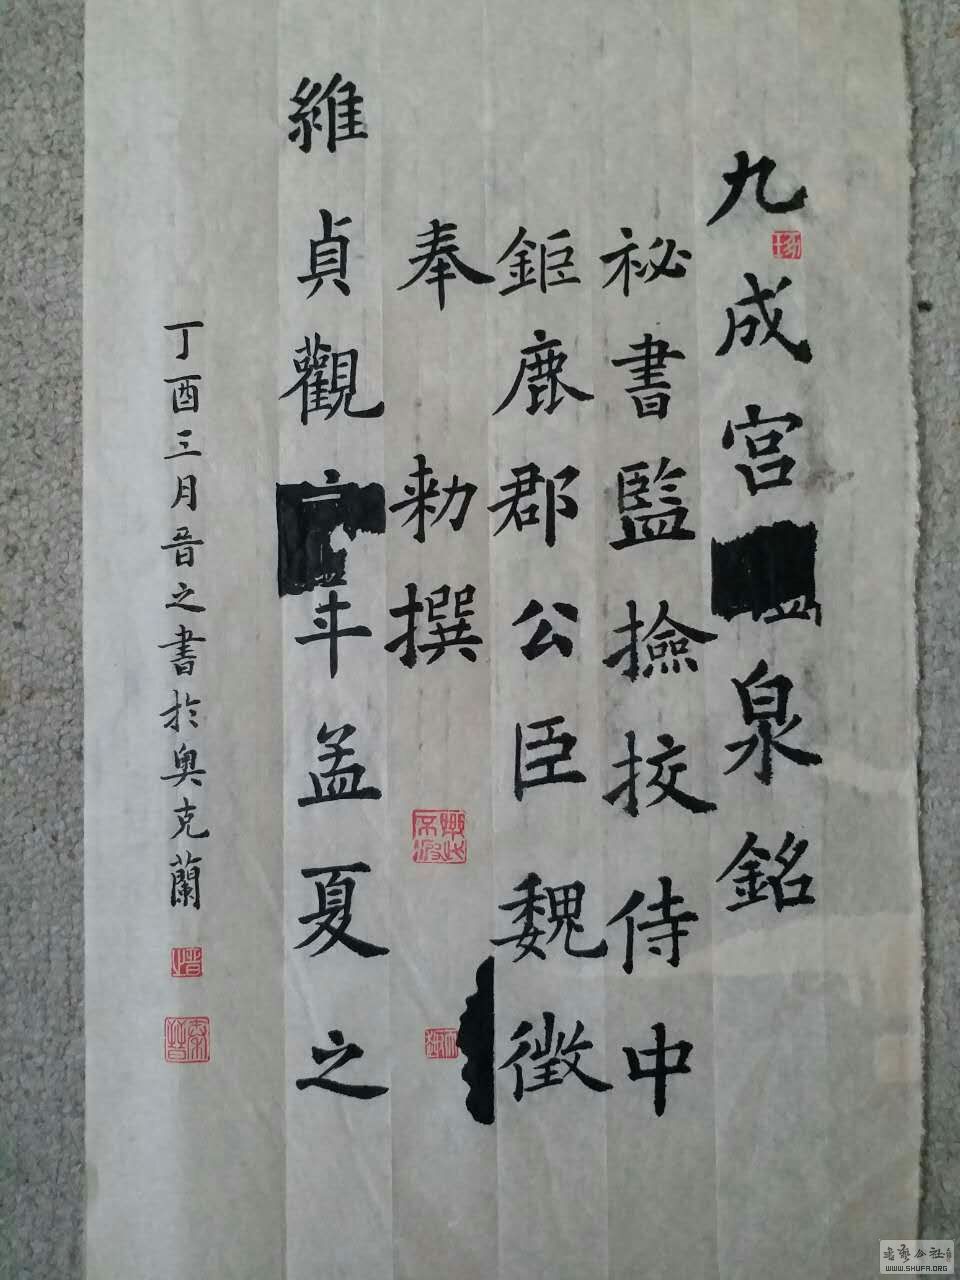 九成宮泉銘
祕書監撿挍侍中
鉅鹿郡公臣魏徵
奉勑撰
維貞觀年孟夏之
丁酉三月晉之書於奧克蘭
WWW.SHUFA.ORG